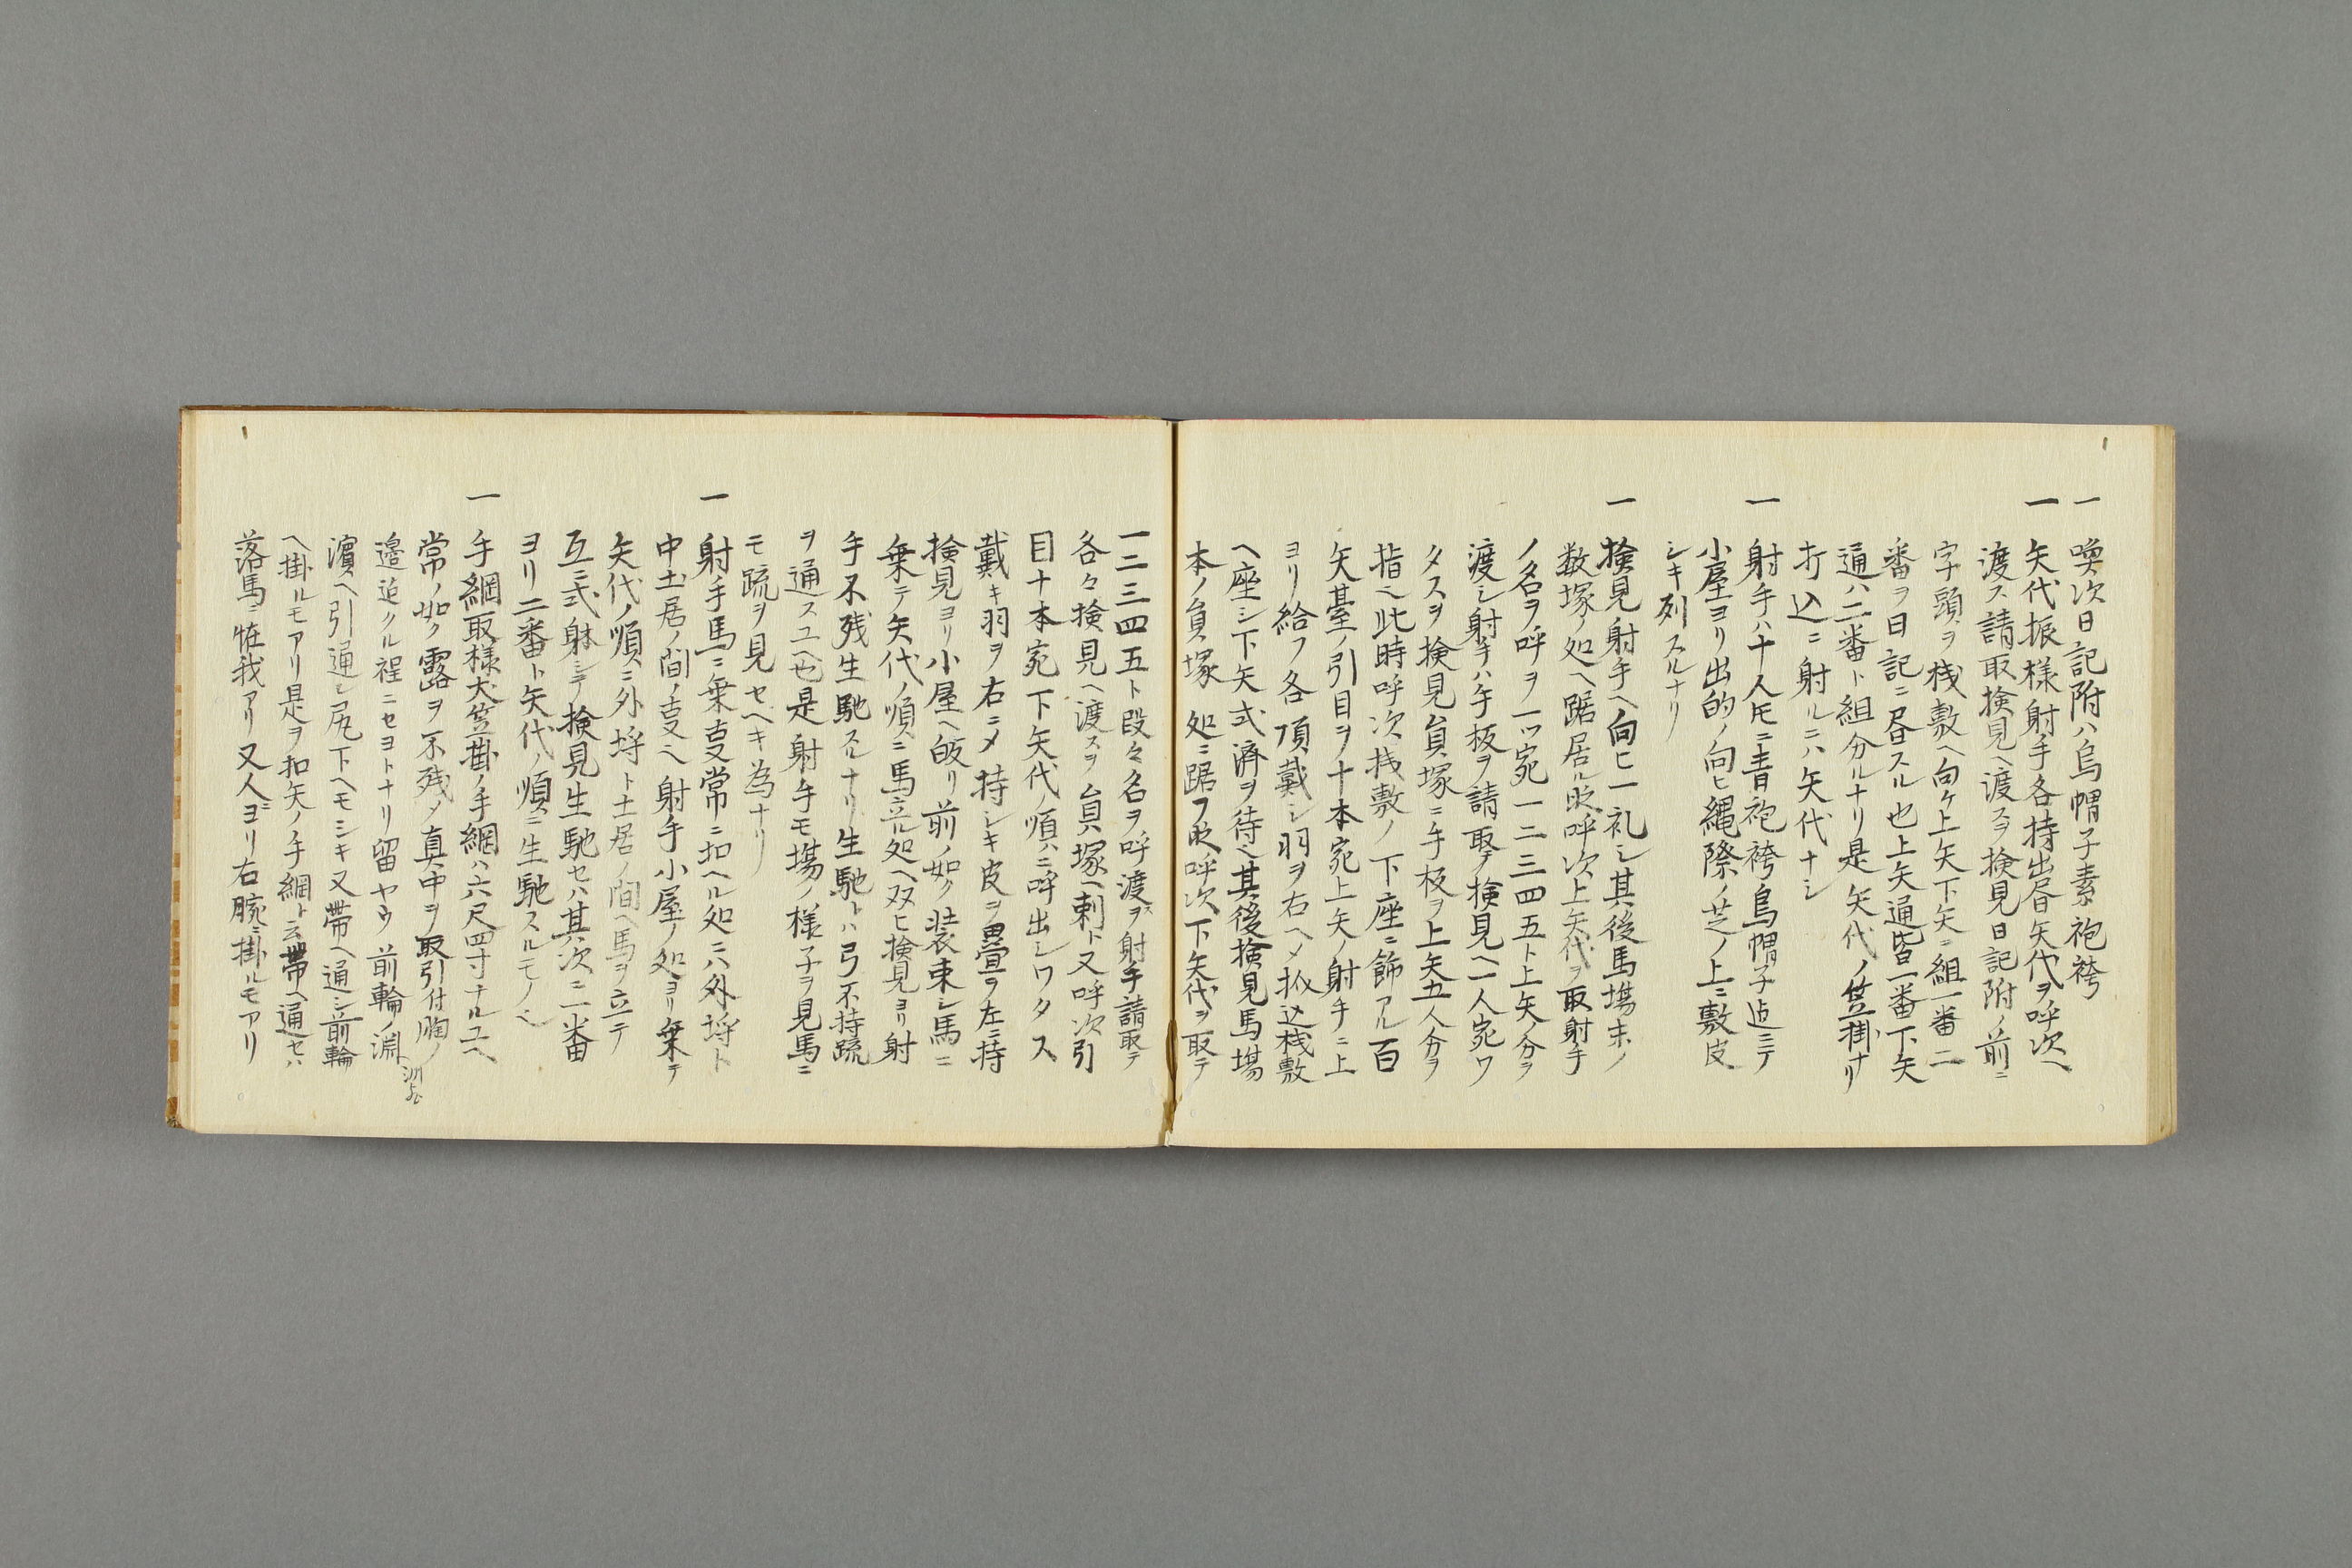 一 喚次日記附ハ烏帽子素袍袴
一 矢代振様射手各持出居矢代ヲ呼次ヘ
渡ス請取検見ヘ渡スヲ検見日記附ノ前ニ
字頭ヲ桟敷ヘ向ケ上矢下矢ニ組一番二
番ヲ日記ニ居スル也上矢通皆一番下矢
通ハ二番ト組分ルナリ是矢代ノ笠掛ナリ
打込ニ射ルニハ矢代ナシ
一 射手ハ十人𪜈ニ青袍袴烏帽子ニテ
小屋ヨリ出的ノ向ヒ縄際ノ芝ノ上ニ敷皮
シキ列スルナリ
一 検見射手ヘ向ヒ一礼シ其後馬場末ノ
数塚ノ処ヘ踞居ル呼次上矢代ヲ取射手
ノ名ヲ呼ヲ一ツ宛一二三四五ト上矢分ヲ
渡シ射手ハ手板ヲ請取テ検見ヘ一人宛ワ
タスヲ検見員塚ニ手板ヲ上矢五人分ヲ
指ヘ此時呼次桟敷ノ下座ニ飾アル百
矢臺ノ引目ヲ十本宛上矢ノ射手ニ上
ヨリ給フ各頂戴シ羽ヲ右ヘメ拟込桟敷
ヘ座シ下矢式済ヲ待ヘ其後検見馬場
本ノ員塚処ニ踞フ呼次下矢代ヲ取テ
一二三四五ト段々名ヲ呼渡ヲ射手請取テ
各々検見ヘ渡スヲ員塚ヘ刺ト又呼次引
目十本宛下矢代ノ順ニ呼出シワタス
戴キ羽ヲ右ニメ持シキ皮ヲ疊ヲ左ニ持
検見ヨリ小屋ヘ皈リ前ノ如ク装束シ馬ニ
乗テ矢代ノ順ニ馬立ル処ヘ双ヒ検見ヨリ射
手不残生馳スルナリ生馳トハ弓不持䟽
ヲ通スユヘ也是射手モ場ノ様子ヲ見馬ニ
モ䟽ヲ見セヘキ為ナリ
一 射手馬ニ乗㕝常ニ扣ヘル処ニハ外埒ト
中土居ノ間ノ㕝ニヘ射手小屋ノ処ヨリ乗テ
矢代ノ順ニ外埒ト土居ノ間ヘ馬ヲ立テ
互ニ式躰シテ検見生馳セハ其次ニ一番
ヨリ二番ト矢代ノ順ニ生馳スルモノ也
一 手綱取様犬笠掛ノ手綱ハ六尺四寸ナルユヘ
常ノ如ク露ヲ不残メ真中ヲ取引付胸ノ
邉迠クル程ニセヨトナリ留ヤウ前輪ノ淵
濱ヘ引通シ尻下ヘモシキ又帯ヘ通シ前輪
ヘ掛ルモアリ是ヲ扣矢ノ手綱ト云帯ヘ通セハ
落馬ニ恠我アリ又人ニヨリ右腕ニ掛ルモアリ